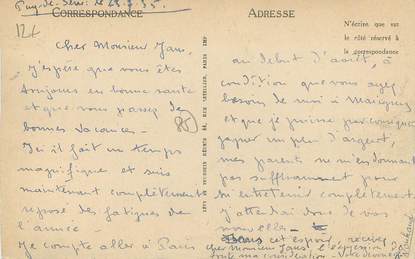 Puy-de-Dôme le 28.7.35.
CORRESPONDANCE
ADRESSE
N'écrire que sur
le côté réservé à
la correspondance
Cher Monsieur Jans,
j'espère que vous êtes
toujours en bonne santé
et que vous passez de
bonnes vacances -
Ici il fait un temps
magnifique et suis
maintenant complètement
reposé des fatigues de
l'année -
Je compte aller à Paris
au début d'août, à
condition que vous ayez
besoin de moi à
et que je puisse par conséquent
gagner un peu d'argent,
mes parents ne m'en donnant
pas suffisamment pour
entretenir complètement
j'attendrai donc de vos
nouvelles -
cet espoir, recevez
cher monsieur Jans l'expression de
toute ma considération - Votre dévoué